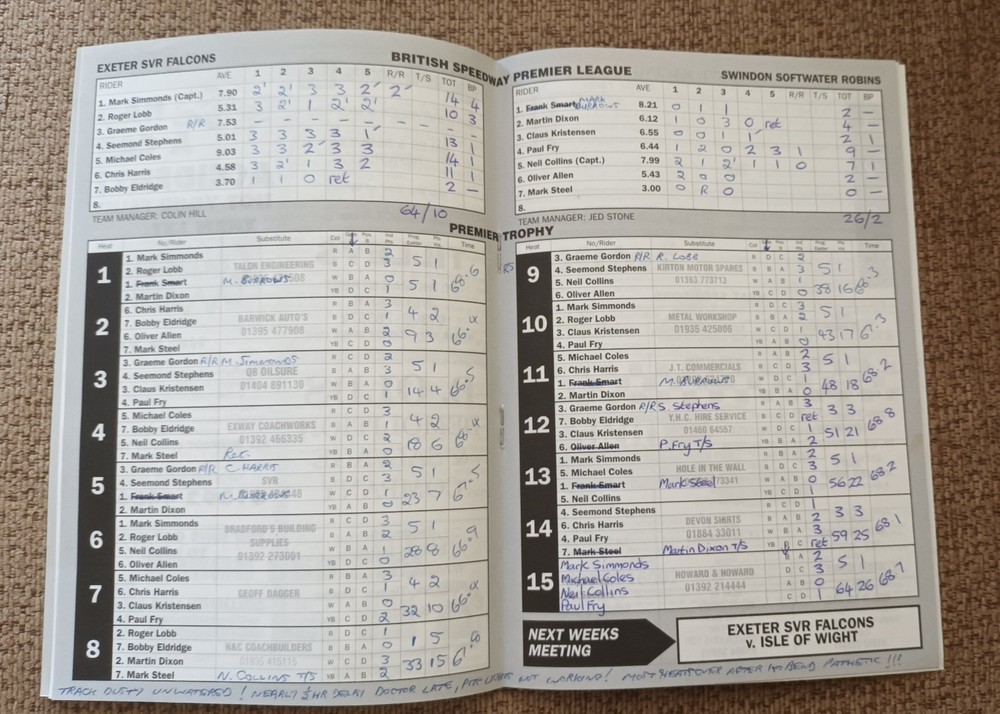 EXETER SVR FALCONS
BRITISH SPEEDWAY PREMIER LEAGUE
SWINDON SOFTWATER ROBINS
RIDER AVE 1 2 3 4 5 R/R T/S TOT BP
1. Mark Simmonds (Capt.) 7.90 2' 2' 3 3 2' 2' 14 4
2. Roger Lobb 5.31 3 2' 1 2' 2' 10 3
3. Graeme Gordon R/R 7.53 - - - - - - -
4. Seemond Stephens 5.01 3 3 3 3 1' 13 1
5. Michael Coles 9.03 3 3 2' 3 3 14 1
6. Chris Harris 4.58 3 2' 1 3 2 11 1
7. Bobby Eldridge 3.70 1 1 0 ret 2 -
8.
TEAM MANAGER: COLIN HILL 64/10
RIDER AVE 1 2 3 4 5 R/R T/S TOT BP
1. Frank Smart MARK BURROWS 8.21 0 1 1 2 -
2. Martin Dixon 6.12 1 0 3 0 ret 4 -
3. Claus Kristensen 6.55 0 0 1 1' 2 1
4. Paul Fry 6.44 1 2 0 2 3 1 9 -
5. Neil Collins (Capt.) 7.99 2 1 2' 1 1 0 7 1
6. Oliver Allen 5.43 2 0 0 2 -
7. Mark Steel 3.00 0 R 0 0 -
8.
TEAM MANAGER: JED STONE 26/2
PREMIER TROPHY
Heat No./Rider Substitute Time
1
1. Mark Simmonds 2
2. Roger Lobb TALON ENGINEERING 3 5 1
1. Frank Smart M. BURROWS 0
2. Martin Dixon 1 5 1 68.6
2
6. Chris Harris 3
7. Bobby Eldridge BARWICK AUTO'S 1 4 2
6. Oliver Allen 01395 477908 2
7. Mark Steel 0 9 3
3
3. Graeme Gordon R/R M. SIMMONDS 2
4. Seemond Stephens OB OILSURE 3 5 1
3. Claus Kristensen 01404 891130 0
4. Paul Fry 1 14 4 66.5
4
5. Michael Coles 3
7. Bobby Eldridge EXWAY COACHWORKS 1 4 2
5. Neil Collins 01392 466335 2
7. Mark Steel Ret. 0 18 6
5
3. Graeme Gordon R/R C HARRIS 2
4. Seemond Stephens SVR 3 5 1
1. Frank Smart M. BURROWS 1 23 7 67.5
2. Martin Dixon 0
6
1. Mark Simmonds 3
2. Roger Lobb BRADFORD'S BUILDING SUPPLIES 2 5 1
5. Neil Collins 01392 273091 1 28 8 66.9
6. Oliver Allen 0
7
5. Michael Coles 3
6. Chris Harris GEOFF DAGGER 1 4 2
3. Claus Kristensen 0 32 10
4. Paul Fry 2
8
2. Roger Lobb 1
7. Bobby Eldridge H&C COACHBUILDERS 0 1 5
2. Martin Dixon 3 33 15
7. Mark Steel N. COLLINS T/S 2
9
3. Graeme Gordon R/R R. LOBB 2
4. Seemond Stephens KIRTON MOTOR SPARES 3 5 1
5. Neil Collins 01363 773713 1
6. Oliver Allen 0 38 16
10
1. Mark Simmonds 3
2. Roger Lobb METAL WORKSHOP 2 5 1
3. Claus Kristensen 01935 425006 1 43 17 67.3
4. Paul Fry 0
11
5. Michael Coles 2
6. Chris Harris J.T. COMMERCIALS 3 5 1
1. Frank Smart M. BURROWS 1
2. Martin Dixon 0 48 18 68.2
12
3. Graeme Gordon R/R S. Stephens 3
7. Bobby Eldridge Y.H.C. HIRE SERVICE ret 3 3
3. Claus Kristensen 01460 64557 1
6. Oliver Allen P. Fry T/S 2 51 21 68.8
13
1. Mark Simmonds 2
5. Michael Coles HOLE IN THE WALL 3 5 1
1. Frank Smart Mark Steel 0
5. Neil Collins 1 56 22 68.2
14
4. Seemond Stephens 1
6. Chris Harris DEVON SHIRTS 2 3 3
4. Paul Fry 01884 33011 3
7. Mark Steel Martin Dixon T/S ret 59 25 68.1
15
Mark Simmonds 2
Michael Coles HOWARD & HOWARD 3 5 1
Neil Collins 01392 214444 0
Paul Fry 1 64 26 68.7
NEXT WEEKS MEETING
EXETER SVR FALCONS
v. ISLE OF WIGHT
TRACK DUSTY UNWATERED! NEARLY ½ HR DELAY DOCTOR LATE, PITS LIGHTS NOT WORKING! MOST HEATS OVER AFTER 1st BEND PATHETIC!!!